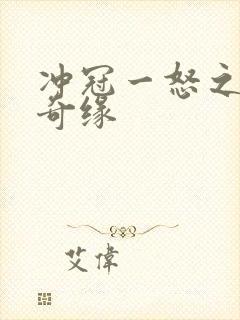 冲冠一怒之
奇缘
艾偉